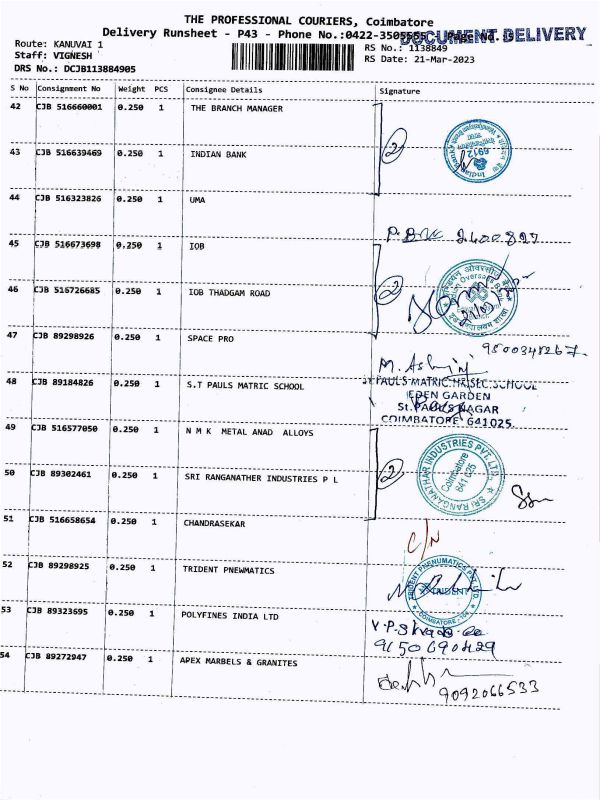 THE PROFESSIONAL COURIERS, Coimbatore
Delivery Runsheet - P43 - Phone No.:0422-3505555 Page No. 5
DOCUMENT DELIVERY
Route: KANUVAI 1
RS No.: 1138849
Staff: VIGNESH
RS Date: 21-Mar-2023
DRS No.: DCJB113884905
S No Consignment No Weight PCS Consignee Details Signature
42 CJB 516660001 0.250 1 THE BRANCH MANAGER
43 CJB 516639469 0.250 1 INDIAN BANK
2
44 CJB 516323826 0.250 1 UMA
45 CJB 516673698 0.250 1 IOB
46 CJB 516726685 0.250 1 IOB THADGAM ROAD
2
47 CJB 89298926 0.250 1 SPACE PRO
9500348267
48 CJB 89184826 0.250 1 S.T PAULS MATRIC SCHOOL
ST.PAULS MATRIC.HR.SEC.SCHOOL
EDEN GARDEN
St.PAULS NAGAR
COIMBATORE 641025.
49 CJB 516577050 0.250 1 N M K METAL ANAD ALLOYS
50 CJB 89302461 0.250 1 SRI RANGANATHER INDUSTRIES P L
2
SRI RANGANATHAR INDUSTRIES PVT LTD
Coimbatore
641 025
51 CJB 516658654 0.250 1 CHANDRASEKAR
C/N
52 CJB 89298925 0.250 1 TRIDENT PNEWMATICS
TRIDENT
COIMBATORE
53 CJB 89323695 0.250 1 POLYFINES INDIA LTD
9150690429
54 CJB 89272947 0.250 1 APEX MARBELS & GRANITES
9092066533